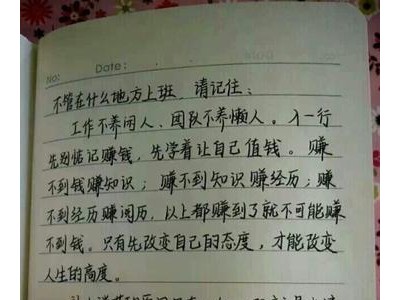 No:
Date:
不管在什么地方上班 请记住:
工作不养闲人、团队不养懒人。入一行
先别惦记赚钱,先学着让自己值钱。赚
不到钱赚知识;赚不到知识赚经历;赚
不到经历赚阅历,以上都赚到了就不可能赚
不到钱。只有先改变自己的态度,才能改变
人生的高度。